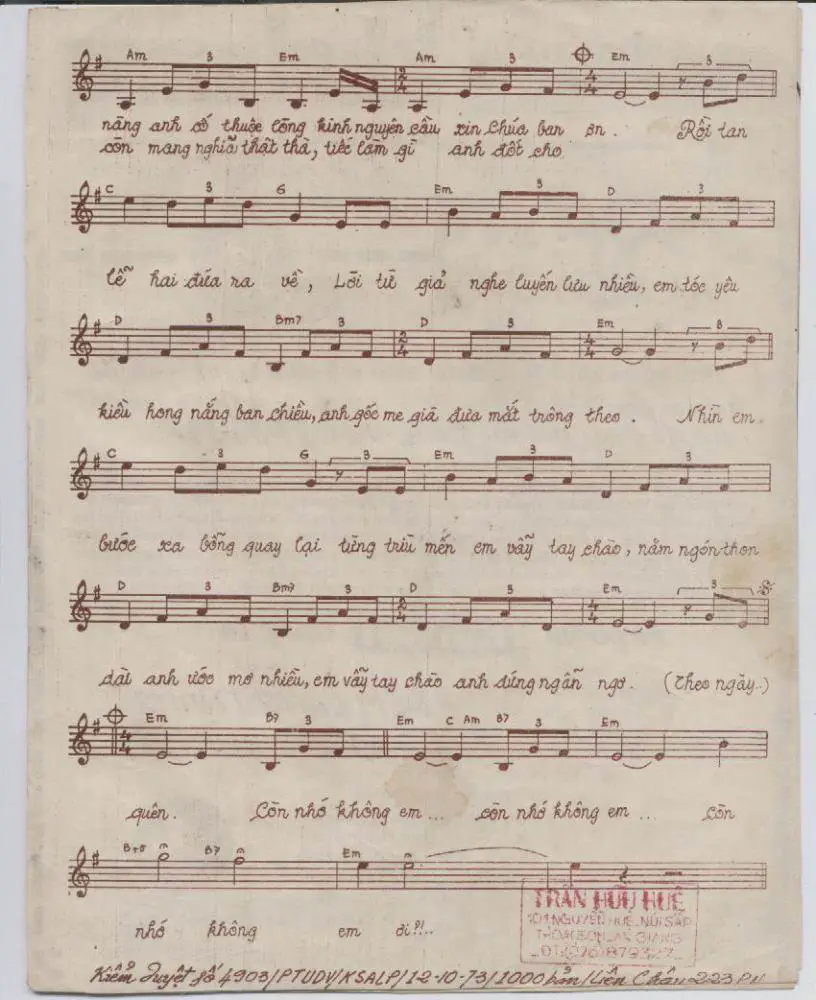 Am 3 Em Am 3 Em 3
năng anh cố thuộc lòng kinh nguyện cầu xin Chúa ban ơn. Rồi tan
còn mang nghĩa thật thà, tiếc làm gì anh đốt cho
C 3 G Em 3 D 3
lễ hai đứa ra về, Lời từ giả nghe luyến lưu nhiều, em tóc yêu
D 3 Bm7 3 D 3 Em 3
kiều hong nắng ban chiều, anh gốc me già đưa mắt trông theo. Nhìn em
C 3 G 3 Em 3 D 3
bước xa bỗng quay lại từng trìu mến em vẫy tay chào, năm ngón thon
D 3 Bm7 3 D 3 Em 3
dài anh ước mơ nhiều, em vẫy tay chào anh đứng ngẩn ngơ. (Theo ngày..)
Em B7 3 Em C Am B7 3 Em
quên. Còn nhớ không em... còn nhớ không em... còn
B+5 B7 Em
nhớ không em ơi?!..
TRẦN HỮU HUỆ
101 NGUYỄN HUỆ-NÚI SẬP
THOẠI SƠN-AN GIANG
ĐT:(076)879327
Kiểm duyệt số 4903/PTUDV/KSALP/12-10-73/1000 bản/Liên Châu-223